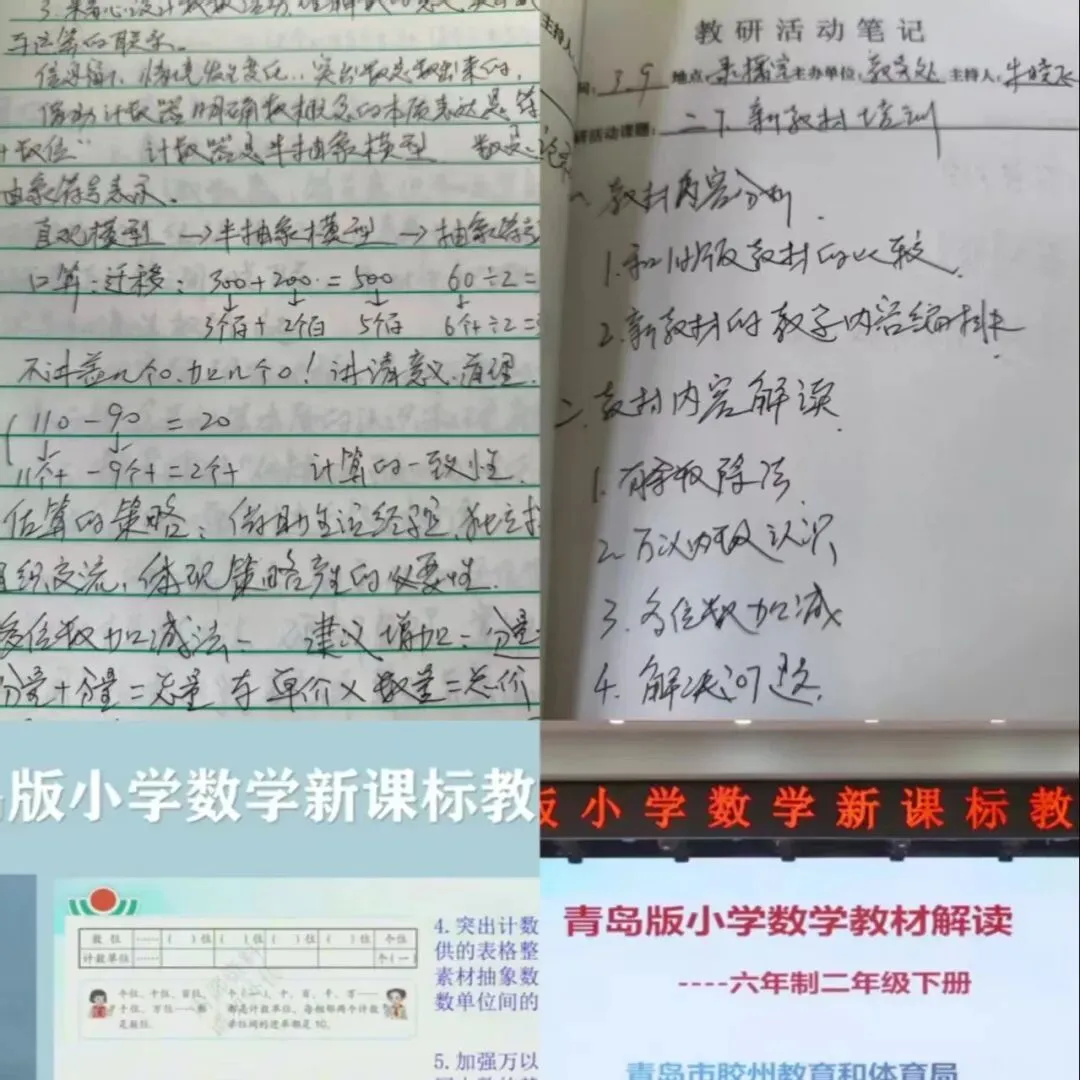 与运算的联系。
借助计数器明确数概念的本质表达是符
+数位" 计数器是半抽象模型
抽象符号表示。
直观模型→半抽象模型→抽象符号
口算:迁移:300+200=500 60÷2=
3个百+2个百 5个百 6个十÷2=3
不讲盖几个0.加几个0!讲清意义.道理.
110-90=20
11个十-9个十=2个十 计算的一致性.
估算的策略:借助生活经验.独立
组织交流.体现策略产生的必要性.
多位数加减法: 建议增加:分量
分量+分量=总量 与 单价×数量=总价
主持人
教研活动笔记
间:3.9 地点:录播室 主办单位:教务处 主持人:
研活动课题:二下新教材培训
一、教材内容分析.
1.和旧版教材的比较.
2.新教材的教学内容编排
二、教材内容解读.
1.有余数除法.
2.万以内数认识
3.多位数加减
4.解决问题.
版小学数学新课标教
数位 …… ( )位 ( )位 ( )位 ( )位 个位
计数单位 …… 个(一)
个位、十位、百位、
千位、万位……都
是数位。
个(一)、十、百、千、万……
都是计数单位。每相邻两个计数
单位间的进率都是10。
4.突出计数
供的表格整
素材抽象数
数单位间的
5.加强万以
版小学数学新课标教
青岛版小学数学教材解读
----六年制二年级下册
青岛市胶州教育和体育局